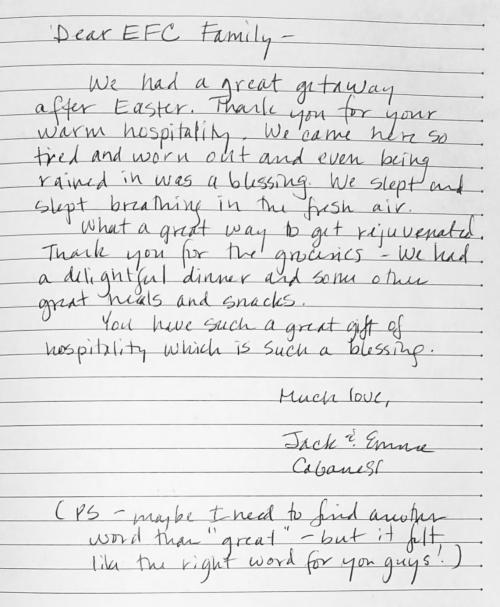 Dear EFC Family -
We had a great getaway
after Easter. Thank you for your
warm hospitality. We came here so
tired and worn out and even being
rained in was a blessing. We slept and
slept breathing in the fresh air.
What a great way to get rejuvenated.
Thank you for the groceries - We had
a delightful dinner and some other
great meals and snacks.
You have such a great gift of
hospitality which is such a blessing.
Much love,
Jack & Emma
(PS - maybe I need to find another
word than "great" - but it felt
like the right word for you guys!)